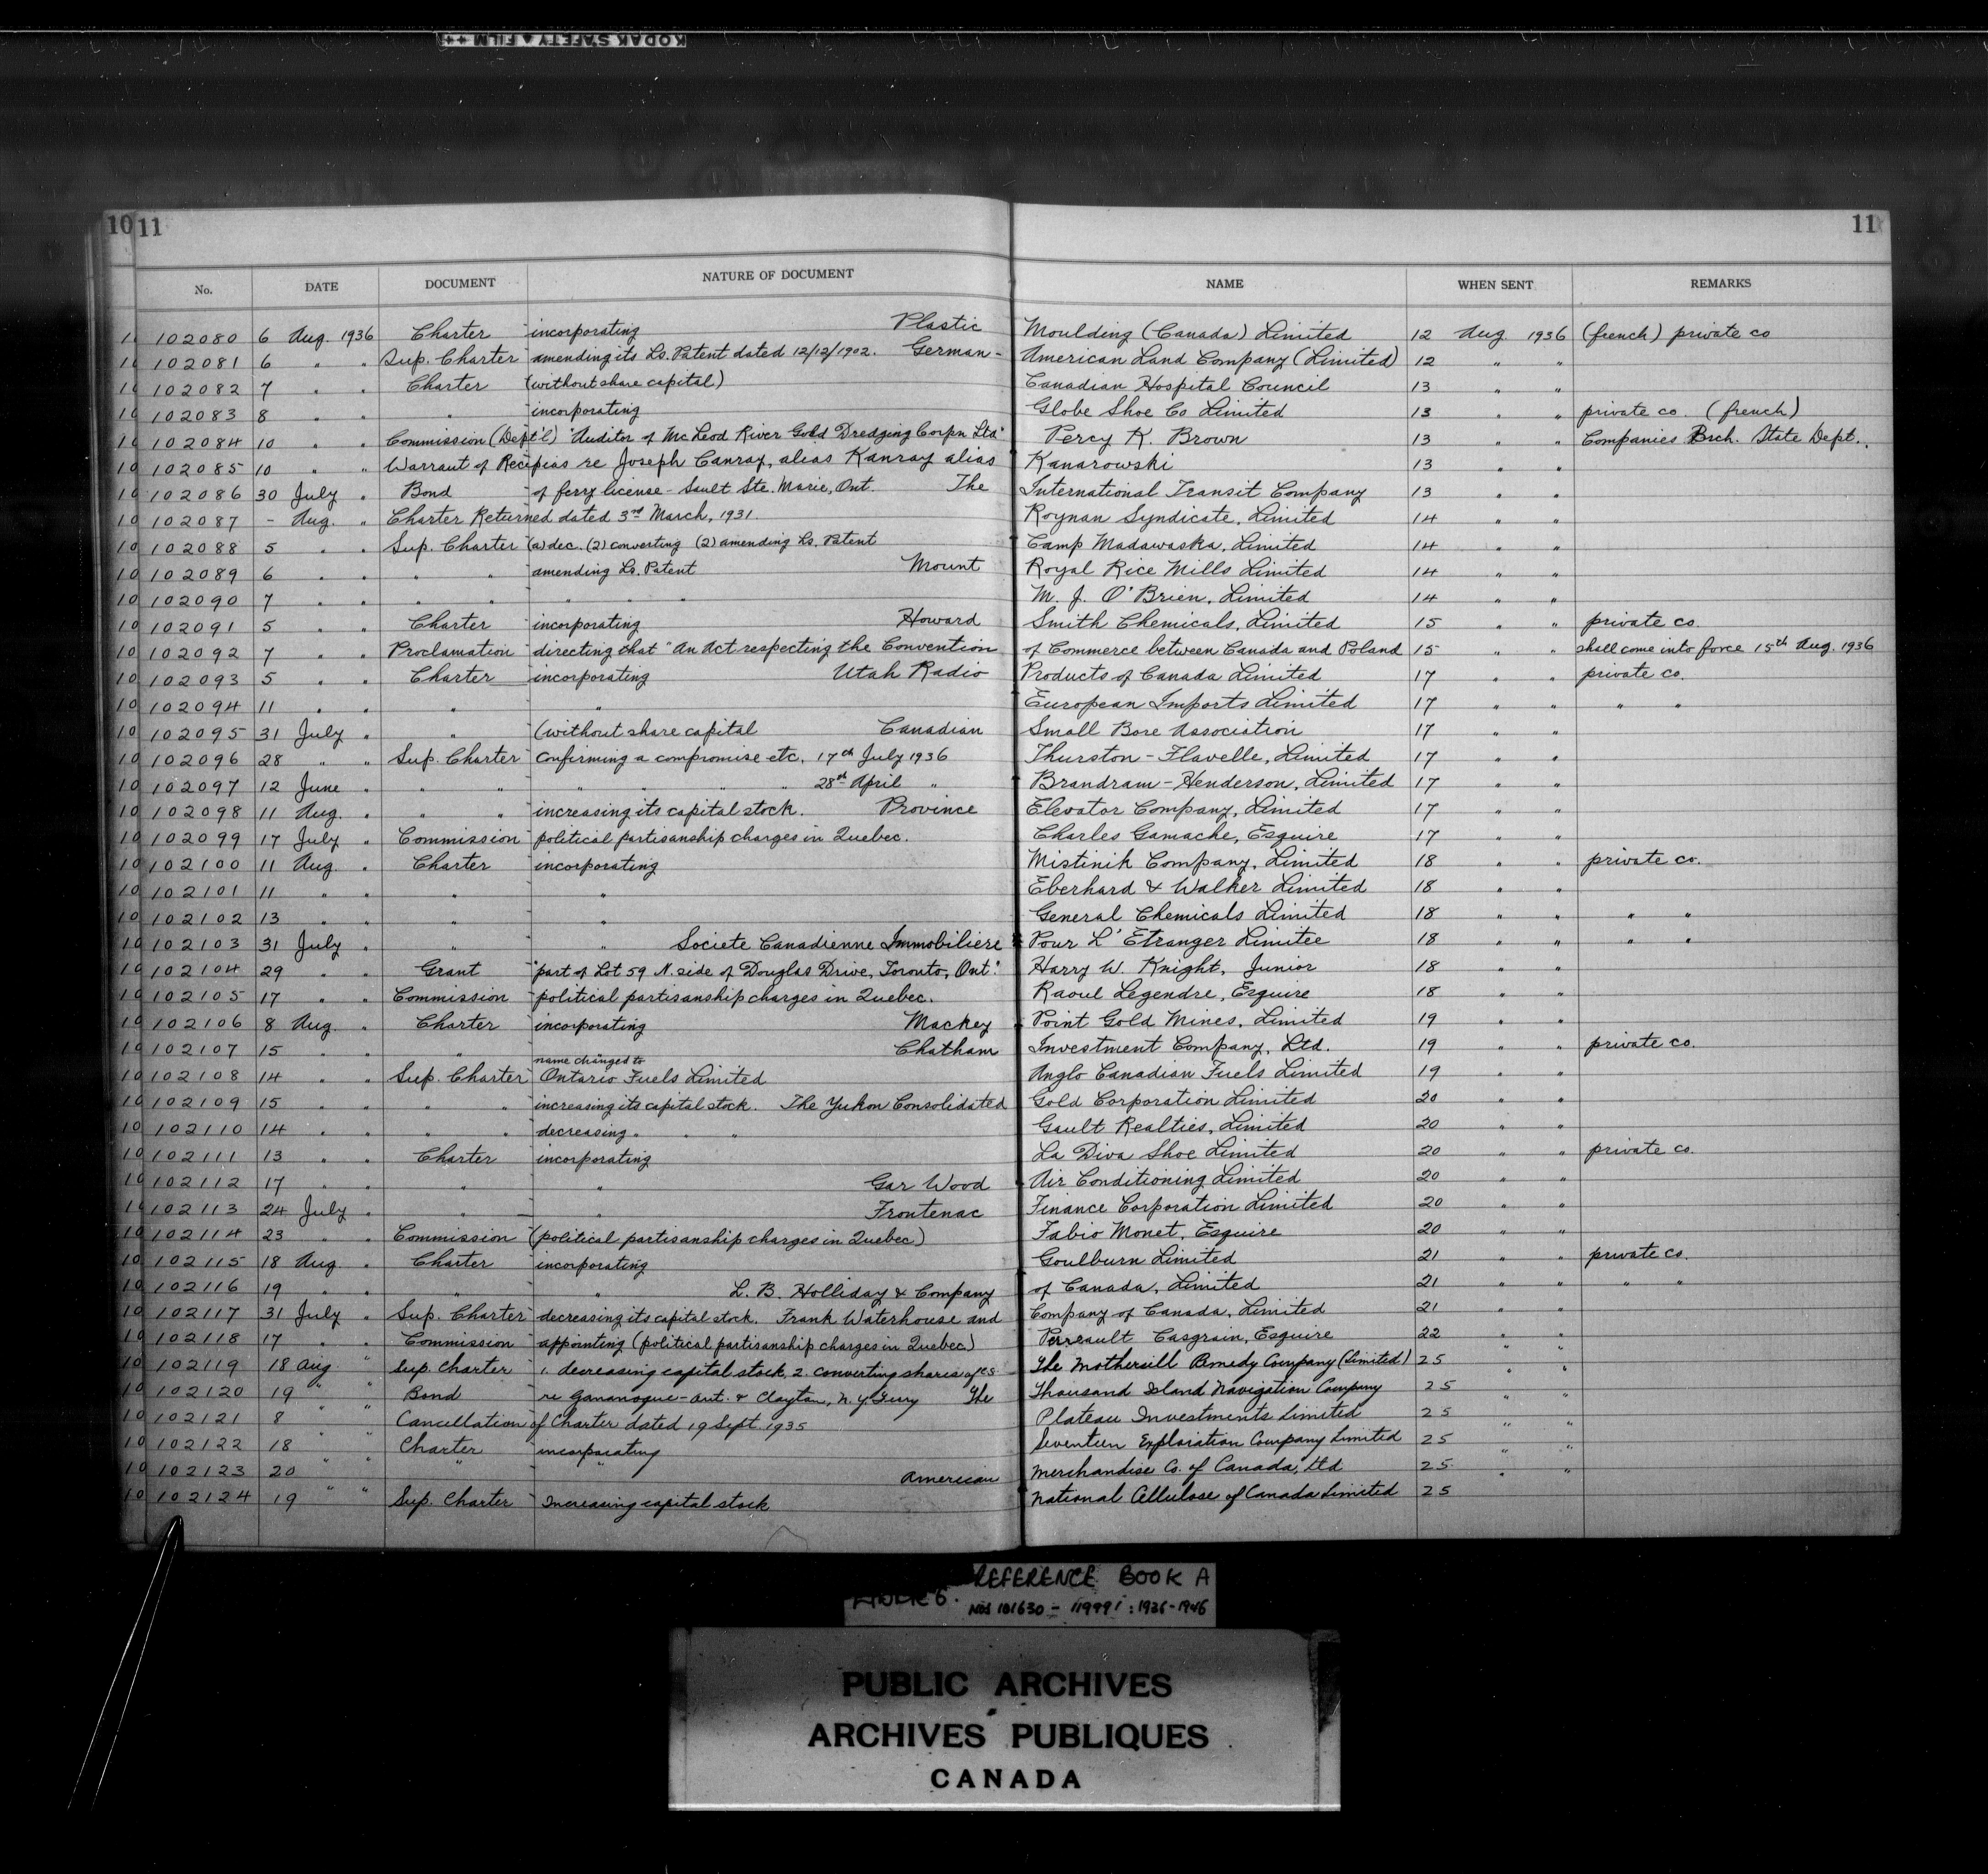 KODAK SAFETY FILM
10 11 11
No. DATE DOCUMENT NATURE OF DOCUMENT NAME WHEN SENT REMARKS
102080 6 Aug. 1936 Charter incorporating Plastic Moulding (Canada) Limited 12 Aug. 1936 (french) private co
102081 6 " " Sup. Charter amending its Ls. Patent dated 12/12/1902. German- American Land Company (Limited) 12 " "
102082 7 " " Charter (without share capital) Canadian Hospital Council 13 " "
102083 8 " " " incorporating Globe Shoe Co Limited 13 " " private co. (french)
102084 10 " " Commission (Dept'l) "Auditor of McLeod River Gold Dredging Corpn Ltd" Percy K. Brown 13 " " Companies Brch. State Dept.
102085 10 " " Warrant of Recipias re Joseph Canray, alias Kanray alias Kanarowski 13 " "
102086 30 July " Bond of ferry license - Sault Ste. Marie, Ont. The International Transit Company 13 " "
102087 - Aug. " Charter Returned dated 3rd March, 1931 Roynan Syndicate, Limited 14 " "
102088 5 " " Sup. Charter (a) dec. (2) converting (2) amending Ls. Patent Camp Madawaska, Limited 14 " "
102089 6 " " " " amending Ls. Patent Mount Royal Rice Mills Limited 14 " "
102090 7 " " " " " " " M. J. O'Brien, Limited 14 " "
102091 5 " " Charter incorporating Howard Smith Chemicals, Limited 15 " " private co.
102092 7 " " Proclamation directing that "An Act respecting the Convention of Commerce between Canada and Poland 15 " " shall come into force 15th Aug. 1936
102093 5 " " Charter incorporating Utah Radio Products of Canada Limited 17 " " private co.
102094 11 " " " " European Imports Limited 17 " " " "
102095 31 July " " (without share capital Canadian Small Bore Association 17 " "
102096 28 " " Sup. Charter Confirming a compromise etc, 17th July 1936 Thurston-Flavelle, Limited 17 " "
102097 12 June " " " " " " " 28th April " Brandram-Henderson, Limited 17 " "
102098 11 Aug. " " " increasing its capital stock. Province Elevator Company, Limited 17 " "
102099 17 July " Commission political partisanship charges in Quebec. Charles Gamache, Esquire 17 " "
102100 11 Aug. " Charter incorporating Mistinik Company, Limited 18 " " private co.
102101 11 " " " " Eberhard & Walker Limited 18 " "
102102 13 " " " " General Chemicals Limited 18 " " " "
102103 31 July " " " Societe Canadienne Immobiliere Pour L'Etranger Limitee 18 " " " "
102104 29 " " Grant "part of Lot 59 N. side of Douglas Drive, Toronto, Ont." Harry W. Knight, Junior 18 " "
102105 17 " " Commission political partisanship charges in Quebec. Raoul Legendre, Esquire 18 " "
102106 8 Aug. " Charter incorporating Mackey Point Gold Mines, Limited 19 " "
102107 15 " " " " Chatham Investment Company, Ltd. 19 " " private co.
102108 14 " " Sup. Charter name changed to Ontario Fuels Limited Anglo Canadian Fuels Limited 19 " "
102109 15 " " " " increasing its capital stock. The Yukon Consolidated Gold Corporation Limited 20 " "
102110 14 " " " " decreasing " " " Gault Realties, Limited 20 " "
102111 13 " " Charter incorporating La Diva Shoe Limited 20 " " private co.
102112 17 " " " " Gar Wood Air Conditioning Limited 20 " "
102113 24 July " " " Frontenac Finance Corporation Limited 20 " "
102114 23 " " Commission (political partisanship charges in Quebec) Fabio Monet, Esquire 20 " "
102115 18 Aug. " Charter incorporating Goulburn Limited 21 " " private co.
102116 19 " " " " L. B. Holliday & Company of Canada, Limited 21 " " " "
102117 31 July " Sup. Charter decreasing its capital stock. Frank Waterhouse and Company of Canada, Limited 21 " "
102118 17 " " Commission appointing (political partisanship charges in Quebec) Perreault Casgrain, Esquire 22 " "
102119 18 Aug. " Sup. Charter 1. decreasing capital stock, 2. converting shares The Mothersill Remedy Company (Limited) 25 " "
102120 19 " " Bond re Gananoque - Ont. & Clayton, N.Y. Ferry The Thousand Island Navigation Company 25
102121 8 " " Cancellation of Charter dated 19 Sept. 1935 Plateau Investments Limited 25 " "
102122 18 " " Charter incorporating Seventeen Exploration Company Limited 25 " "
102123 20 " " " " American Merchandise Co. of Canada, Ltd 25 " "
102124 19 " " Sup. Charter Increasing capital stock National Cellulose of Canada Limited 25
REFERENCE BOOK A
NOS 101630 - 119991 : 1936-1946
PUBLIC ARCHIVES
ARCHIVES PUBLIQUES
CANADA